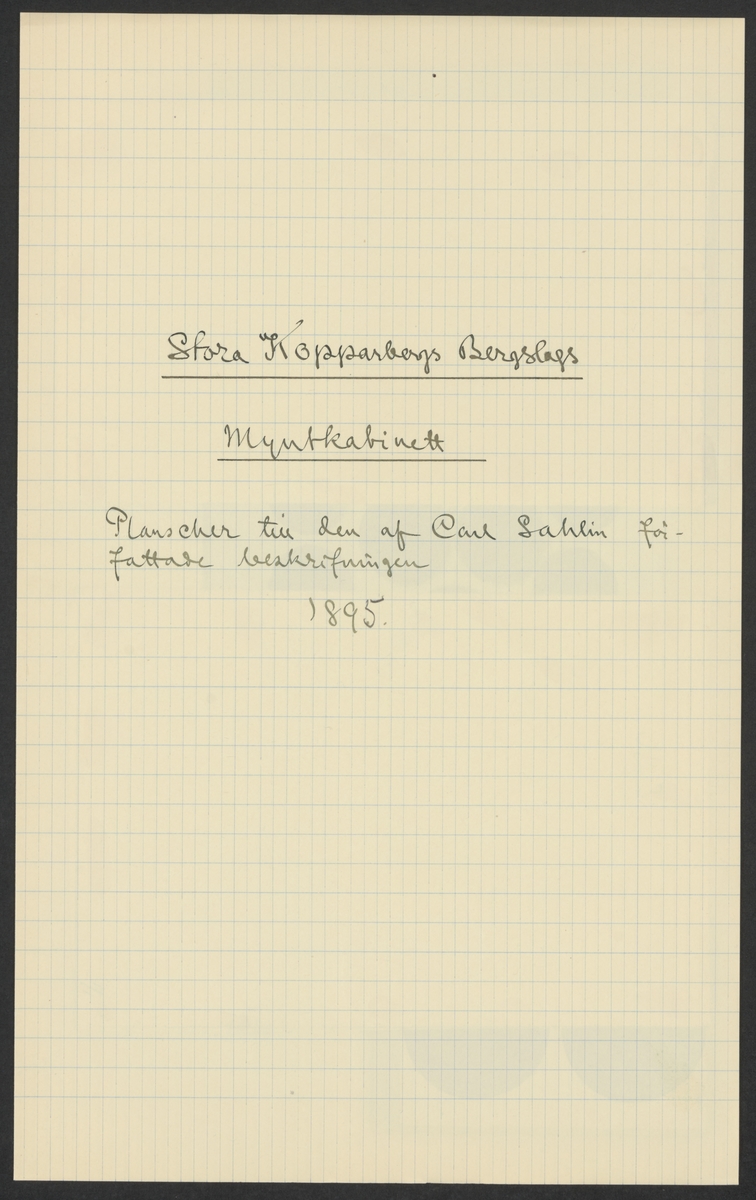 Stora Kopparbergs Bergslags
Myntkabinett
Planscher till den af Carl Sahlin för-
fattade beskrifningen
1895.